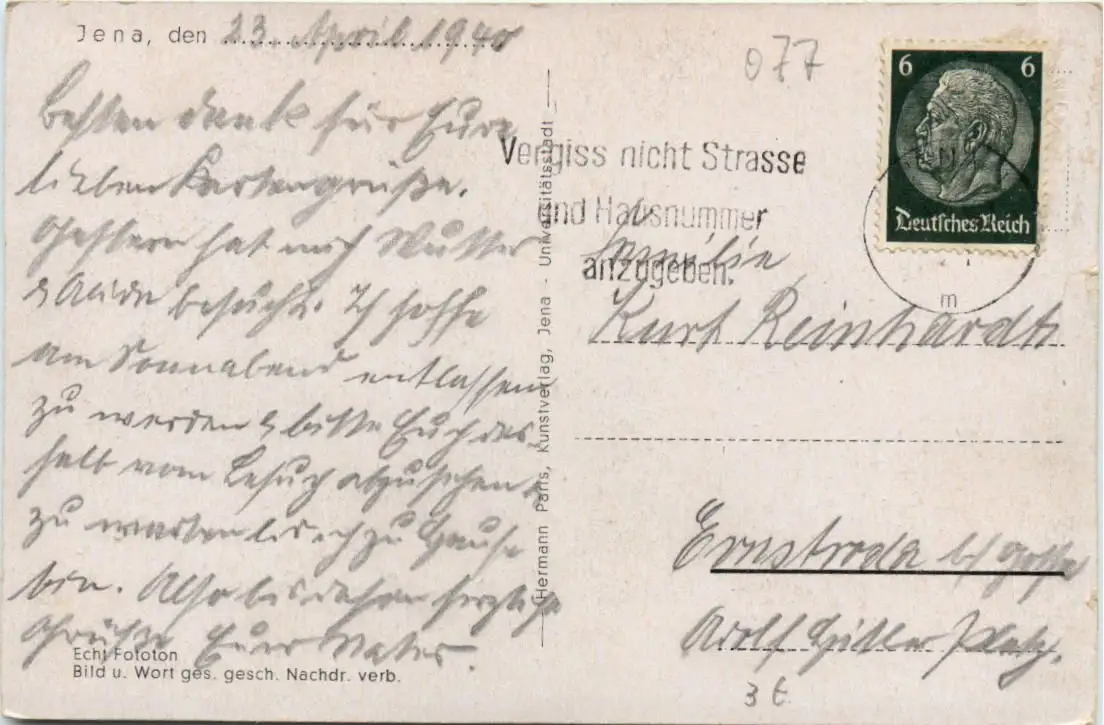 Jena, den 23. April 1940
Besten Dank für Eure
lieben Kartengrüße.
Gestern hat mich Mutter
& besucht. Ich hoffe
am Sonnabend entlassen
zu werden & bitte Euch des-
halb vom Besuch abzusehen &
zu warten bis ich zu Hause
bin. Also bis dahin herzliche
Grüße Euer Vater.
Echt Fototon
Bild u. Wort ges. gesch. Nachdr. verb.
Hermann Paris, Kunstverlag, Jena - Universitätsstadt
077
6 6
Deutsches Reich
Vergiss nicht Strasse
und Hausnummer
anzugeben.
m
Familie
Kurt Reinhardt
Ernstroda b/ Gotha
Adolf Hitler Platz.
3 €